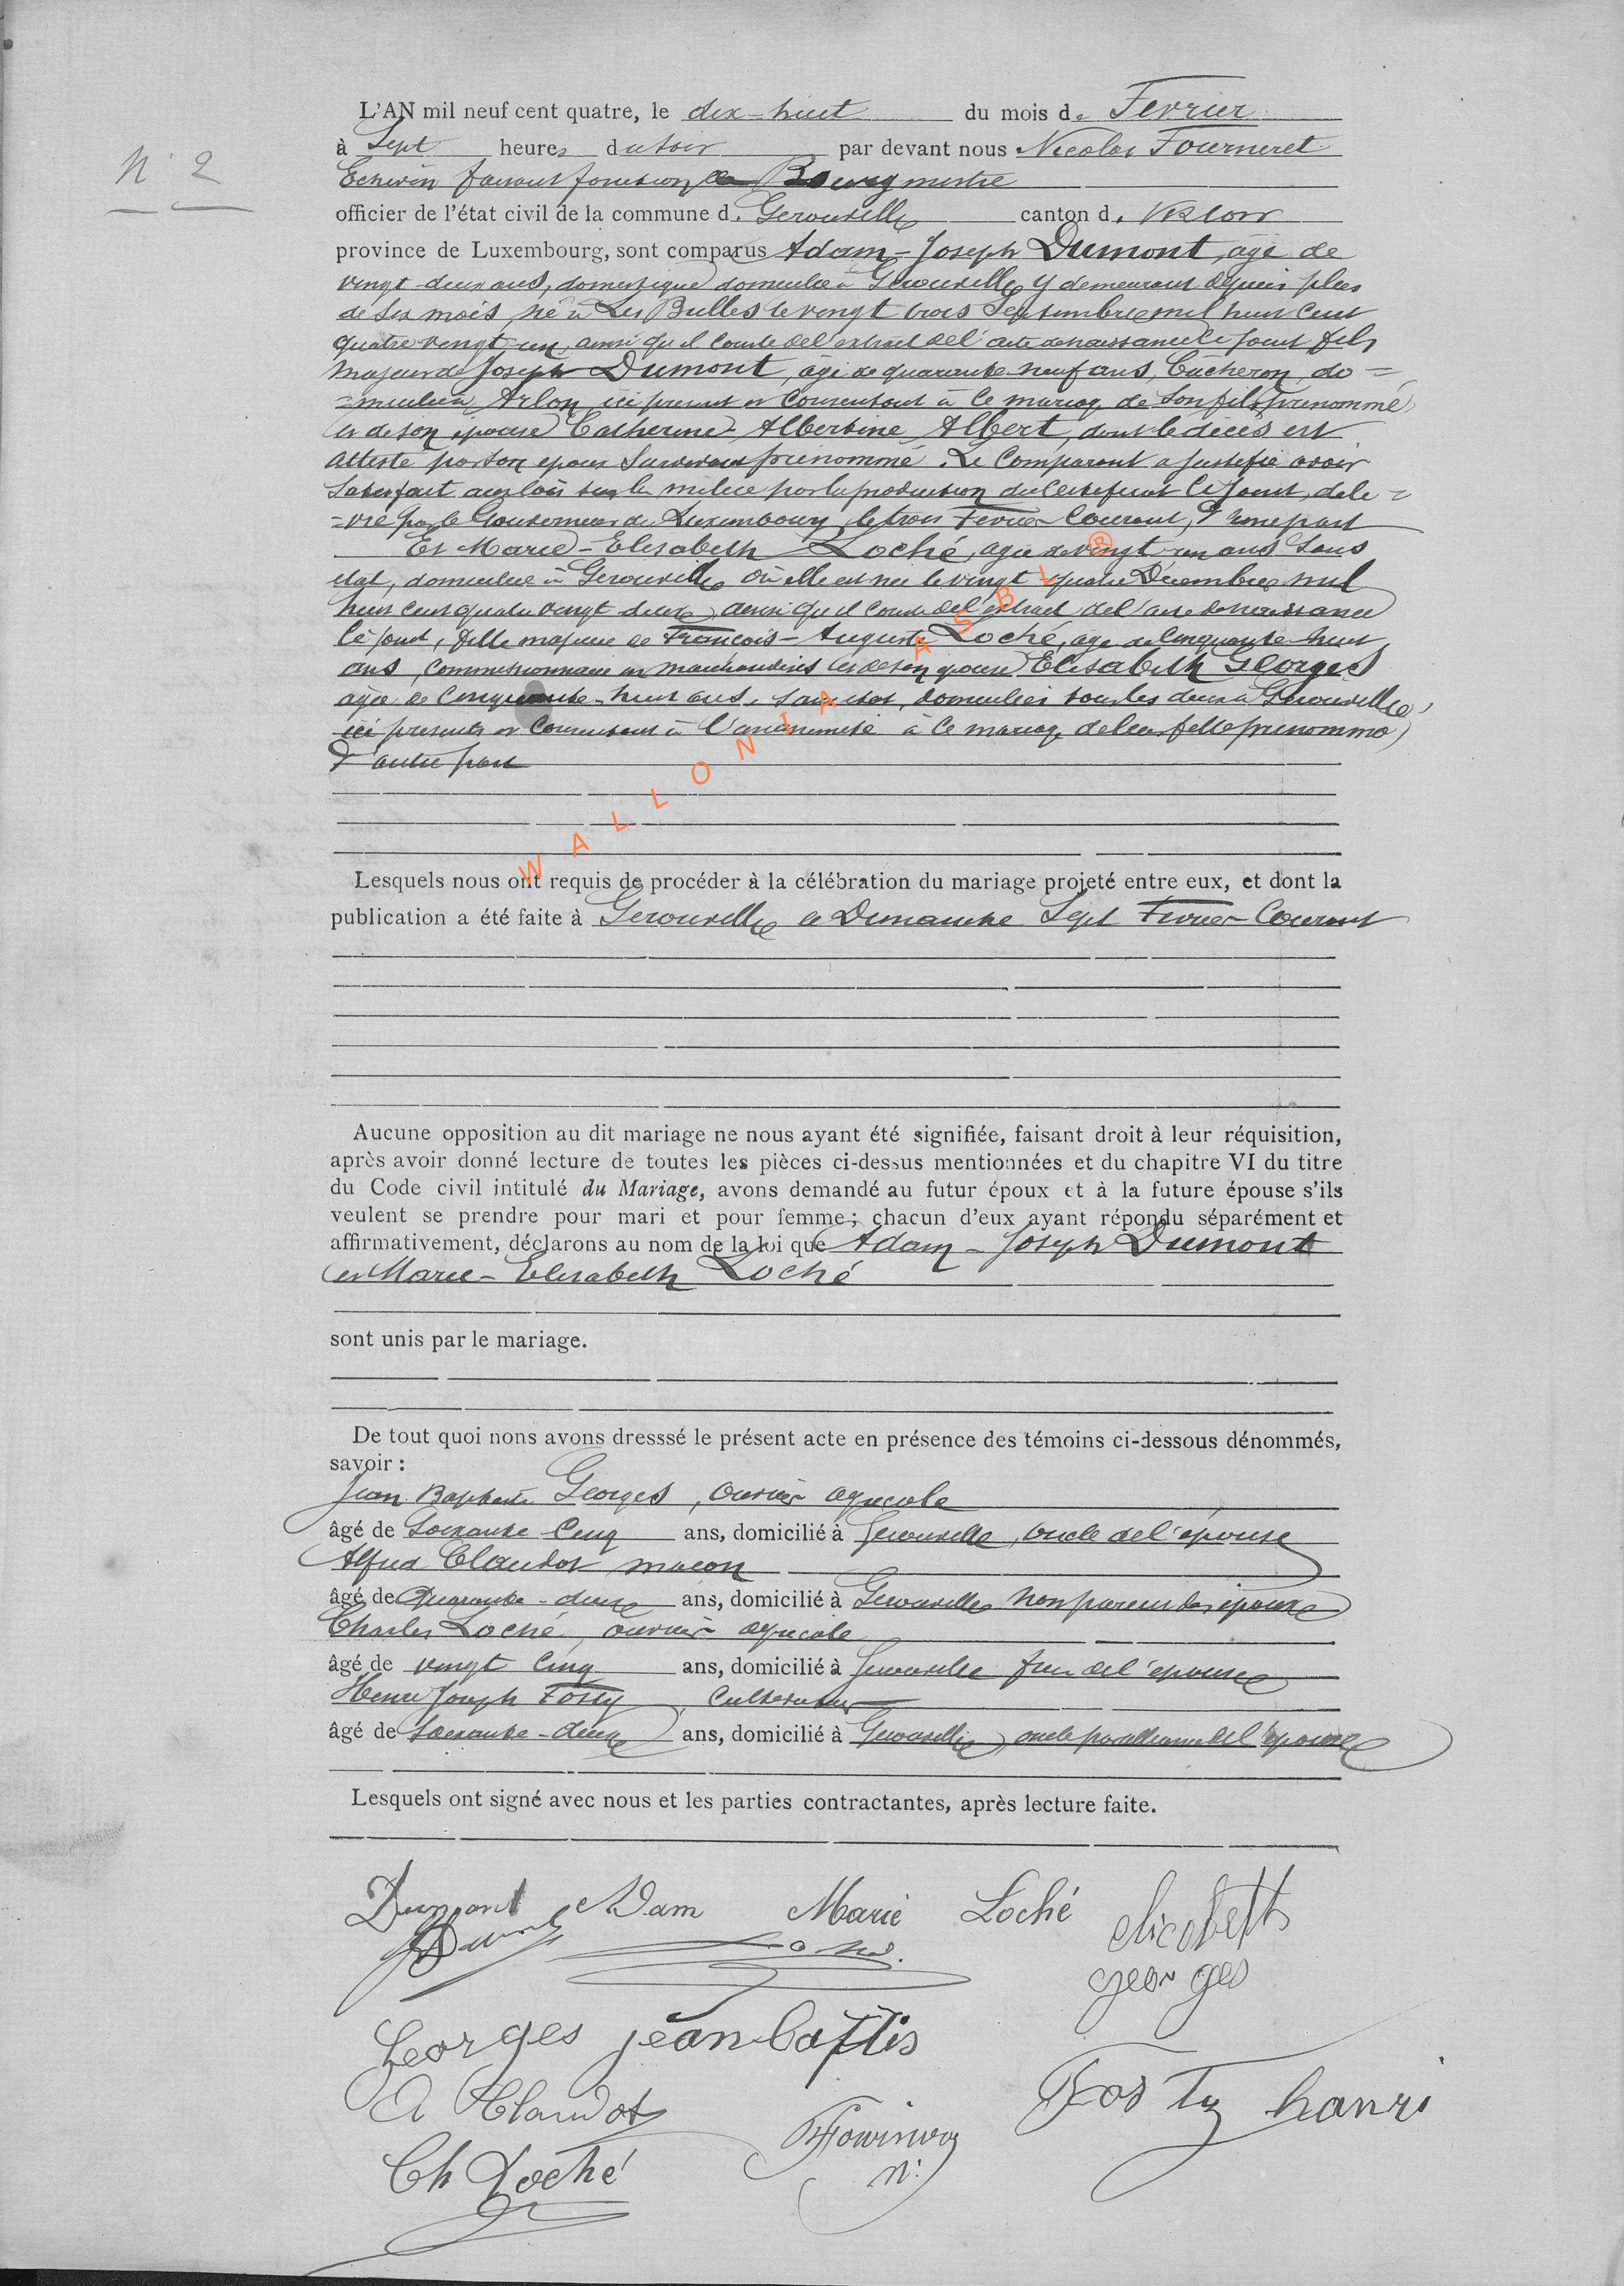 N° 2
L'AN mil neuf cent quatre, le dix-huit du mois de Fevrier
à Sept heures du soir par devant nous Nicolas Fourneret
Echevin faisant fonction de Bourgmestre
officier de l'état civil de la commune de Gerouville canton de Virton
province de Luxembourg, sont comparus Adam-Joseph Dumont, âgé de
vingt-deux ans, domestique domicilié à Gerouville y demeurant depuis plus
de six mois, né à Les Bulles le vingt trois Septembre mil huit cent
quatre vingt un, ainsi qu'il conste de l'extrait de l'acte de naissance ci joint fils
majeur de Joseph Dumont, âgé de quarante-neuf ans, bûcheron, do=
=micilié à Arlon, ici présent et consentant à ce mariage de son fils prénommé,
et de son épouse Catherine Albertine Albert, dont le décès est
attesté par son époux survivant prénommé. Le Comparant a justifié avoir
satisfait aux lois sur la milice par la production du certificat ci joint, déli=
=vré par le Gouverneur du Luxembourg, le trois Fevrier Courant, d'une part
Et Marie-Elisabeth Loché, âgée de vingt-un ans sans
état, domiciliée à Gerouville où elle est née le vingt quatre Décembre mil
huit cent quatre vingt deux, ainsi qu'il conste de l'extrait de l'acte de naissance
ci joint, fille majeure de François-Auguste Loché, âgé de cinquante-huit
ans, commissionnaire en marchandises et de son épouse Elisabeth Georges
âgée de cinquante-huit ans, sans état, domiciliés tous les deux à Gerouville,
ici présents et consentant à l'unanimité à ce mariage de leur fille prénommé,
d'autre part
WALLONIA ASBL ®
Lesquels nous ont requis de procéder à la célébration du mariage projeté entre eux, et dont la
publication a été faite à Gerouville le Dimanche Sept Fevrier Courant
Aucune opposition au dit mariage ne nous ayant été signifiée, faisant droit à leur réquisition,
après avoir donné lecture de toutes les pièces ci-dessus mentionnées et du chapitre VI du titre
du Code civil intitulé du Mariage, avons demandé au futur époux et à la future épouse s'ils
veulent se prendre pour mari et pour femme; chacun d'eux ayant répondu séparément et
affirmativement, déclarons au nom de la loi que Adam-Joseph Dumont
et Marie-Elisabeth Loché
sont unis par le mariage.
De tout quoi nons avons dresssé le présent acte en présence des témoins ci-dessous dénommés,
savoir :
Jean Baptiste Georges, ouvrier agricole
âgé de Soixante cinq ans, domicilié à Gerouville, oncle de l'épouse
Alfred Claudot maçon
âgé de Quarante-deux ans, domicilié à Gerouville non parent des époux
Charles Loché, ouvrier agricole
âgé de vingt cinq ans, domicilié à Gerouville frère de l'épouse
Henri Joseph Fosty, Cultivateur
âgé de Soixante-deux ans, domicilié à Gerouville, oncle par alliance de l'épouse
Lesquels ont signé avec nous et les parties contractantes, après lecture faite.
Dumont Adam Marie Loché elisabeth
georges
georges jean batis
A Claudot Fosty hanri
Ch Loché